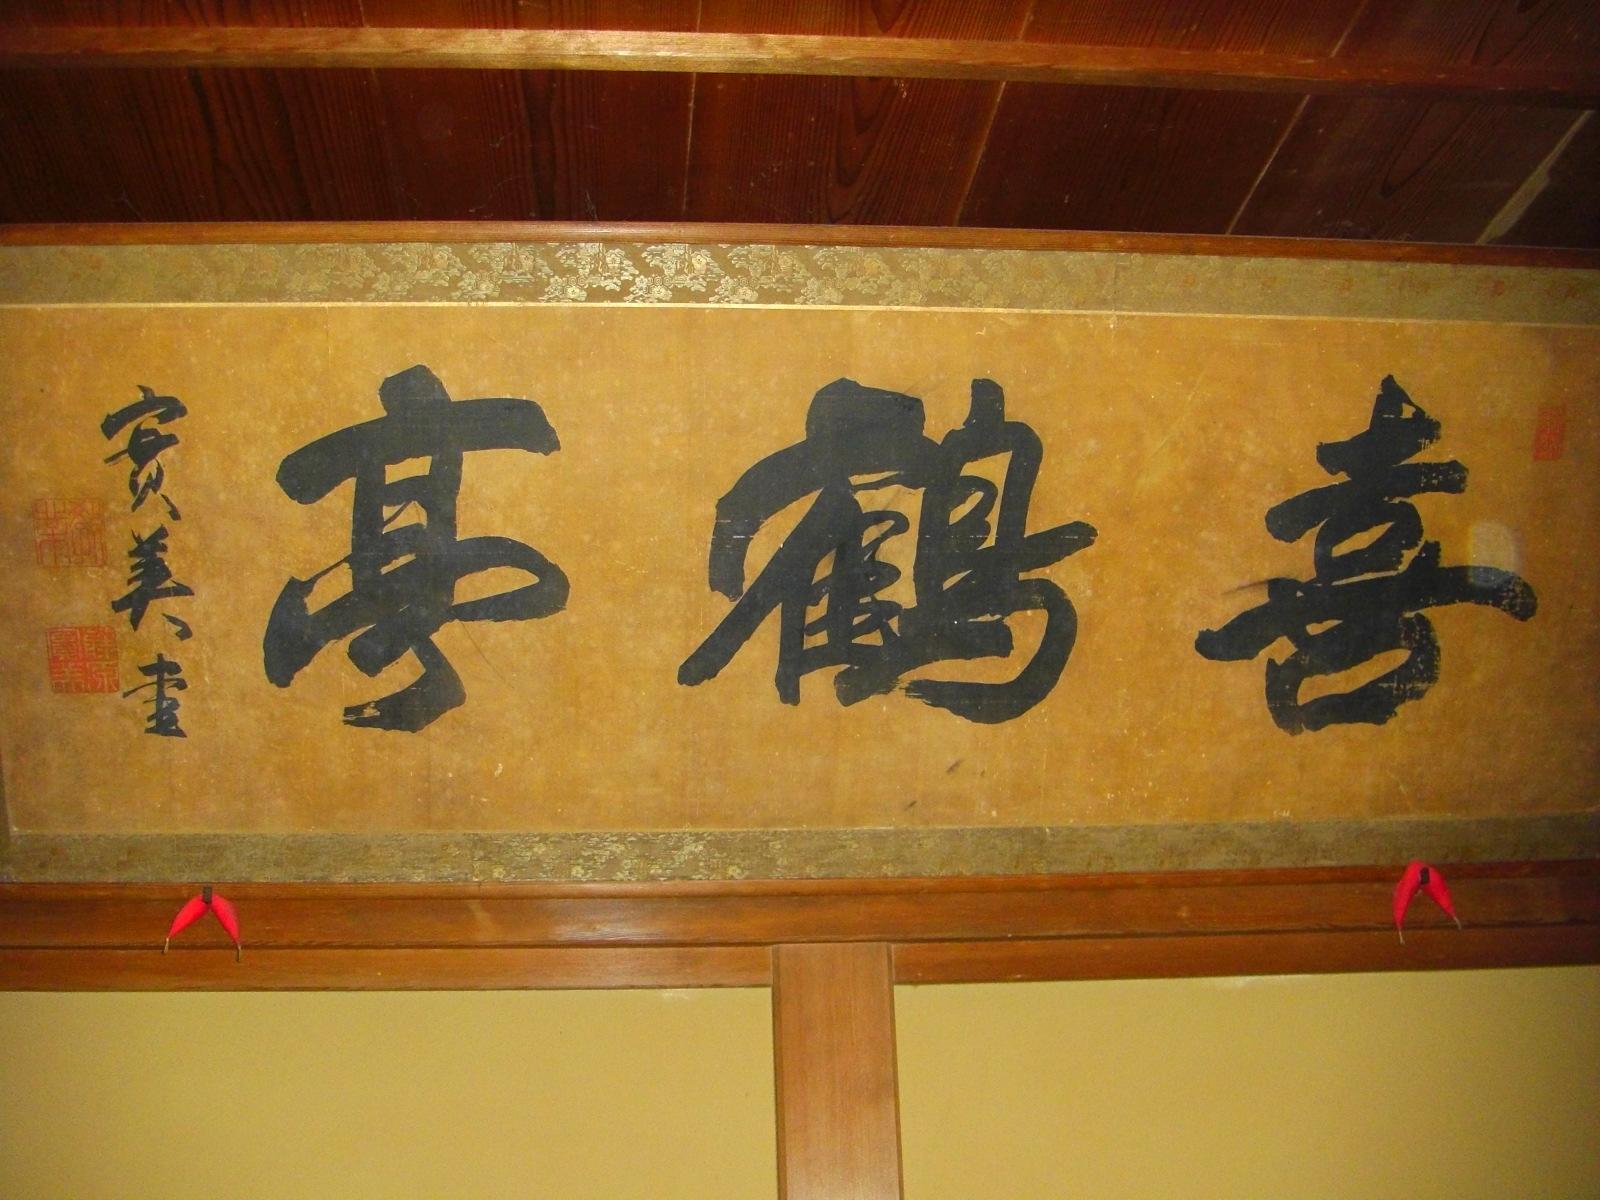 喜鶴亭
實美書